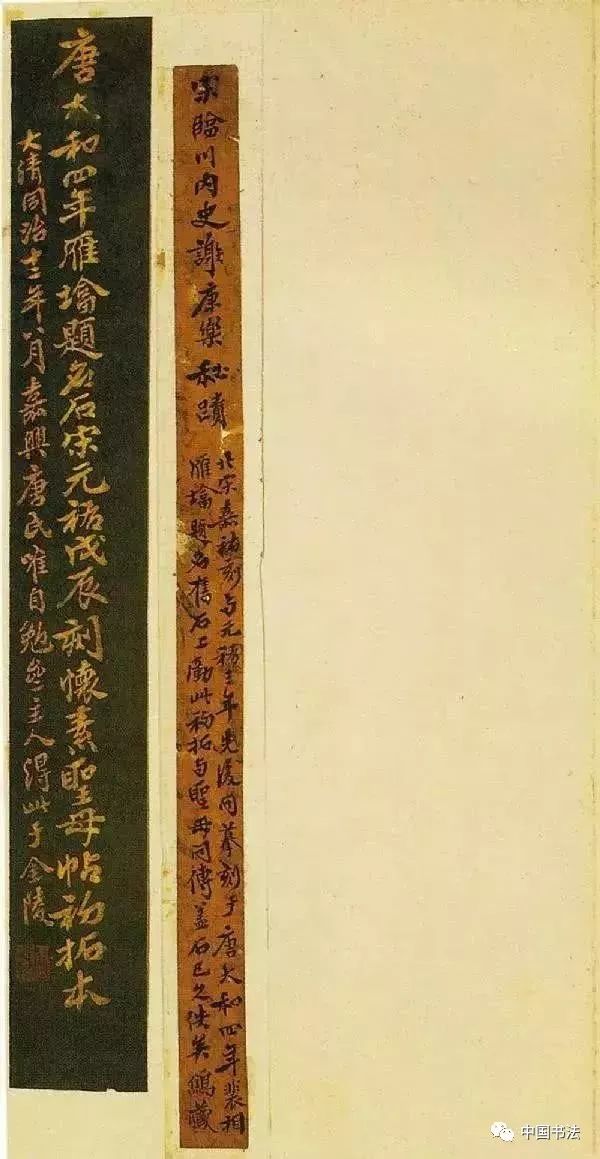 宋臨川內史謝康樂秘蹟
北宋嘉祐刻与元祐三年先後同摹刻于唐大和四年裴相
雁墖題名舊石上此初拓与聖母同傳蓋石已久佚矣藏
唐大和四年雁墖題名石宋元祐戊辰刻懷素聖母帖初拓本
大清同治十三年八月嘉興唐氏唯自勉盦主人得此于金陵
中国书法